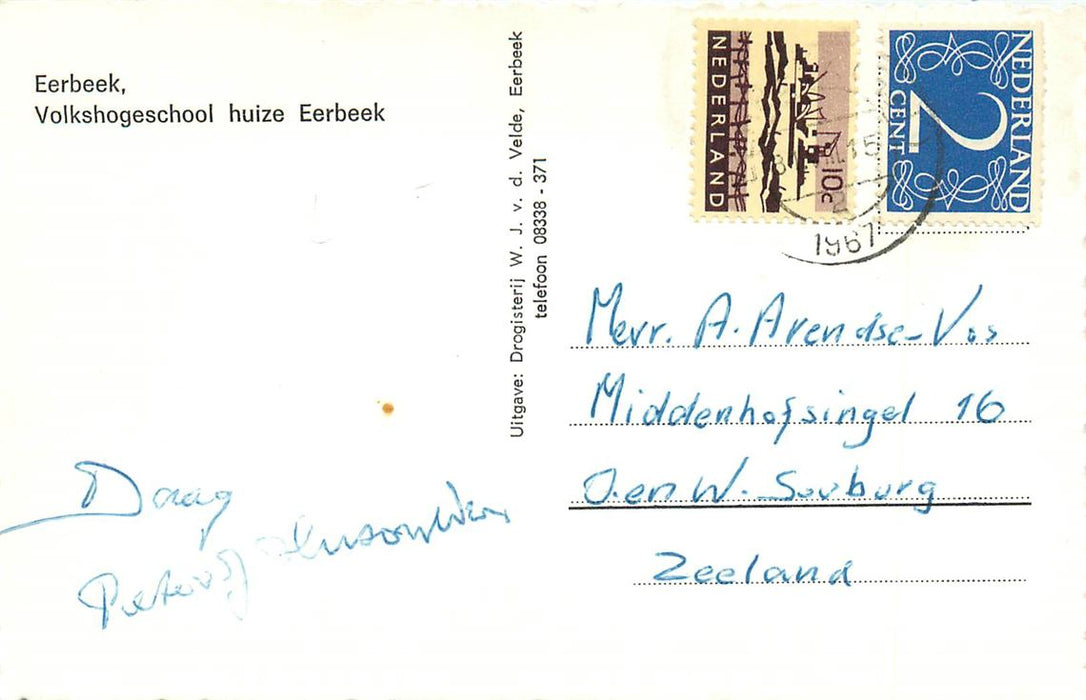 Eerbeek,
Volkshogeschool huize Eerbeek
Uitgave: Drogisterij W. J. v. d. Velde, Eerbeek
telefoon 08338 - 371
NEDERLAND
10c
NEDERLAND
2
CENT
15
2
1967
Mevr. A. Arendse-Vos
Middenhofsingel 16
O.en W. Souburg
Zeeland
Daag